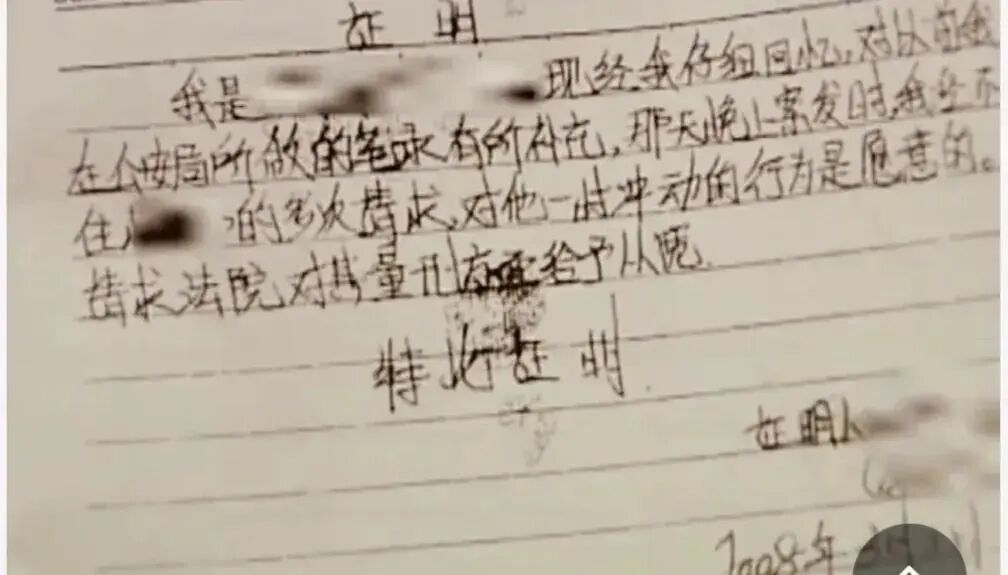 证明
我是 现经我仔细回忆,对以前我
在公安局所做的笔录有所补充,那天晚上案发时,我经不
住 的多次请求,对他一时冲动的行为是愿意的。
请求法院对其量刑 给予从宽
特此证明
证明人
2008年